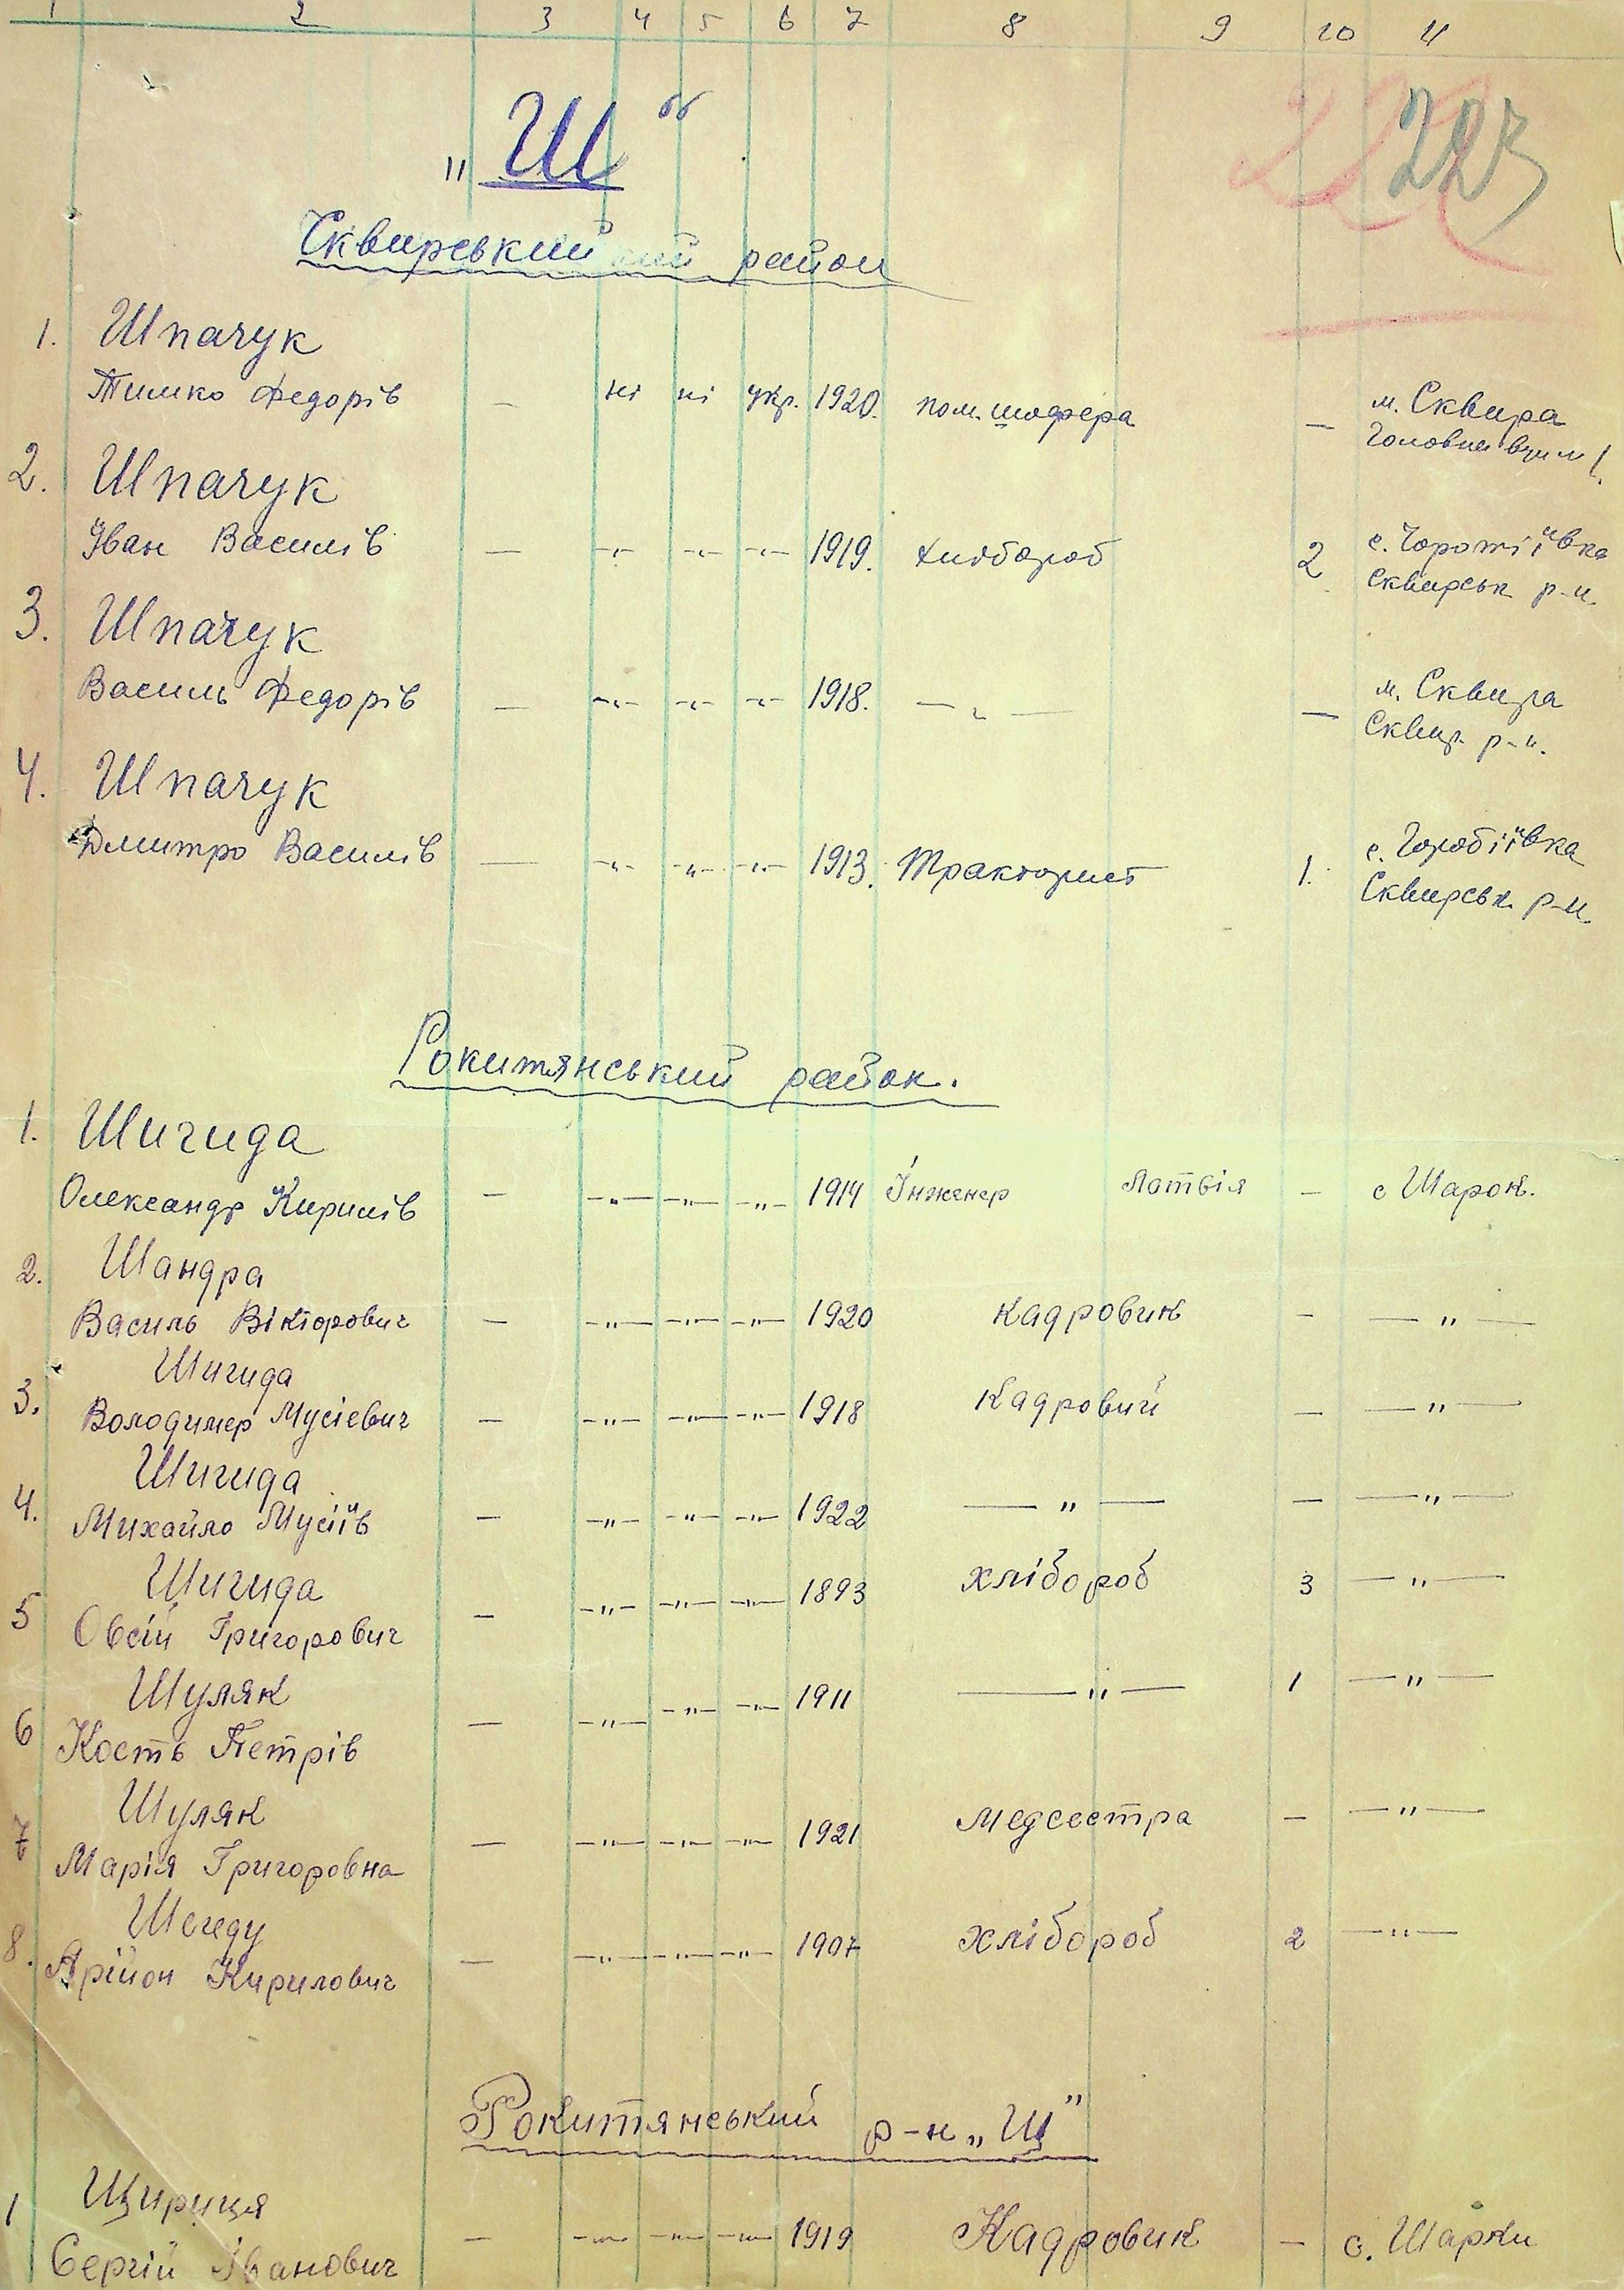 1 2 3 4 5 6 7 8 9 10 11
223
„Ш“
Сквирський район
1. Шпачук
Тимко Федорів — ні ні укр. 1920. пом. шофера — м. Сквира
2. Шпачук
Іван Василів — -„- -„- -„- 1919. хлібороб 2 с.
Сквирськ р-н
3. Шпачук
Василь Федорів — -„- -„- -„- 1918. —„— — м. Сквира
Сквир. р-н.
4. Шпачук
Дмитро Василів — -„- -„- -„- 1913. Тракторист 1. с. Горобіївка
Сквирськ р-н
Рокитянський район.
1. Шигида
Олександр Кирилів — -„- -„- -„- 1914 Інженер Латвія — с Шарок.
2. Шандра
Василь Вікторович — -„- -„- -„- 1920 Кадровик — —„—
3. Шигида
Володимер Мусієвич — -„- -„- -„- 1918 Кадровий — —„—
4. Шигида
Михайло Мусіїв — -„- -„- -„- 1922 —„— — —„—
5 Шигида
Овсій Григорович — -„- -„- -„- 1893 хлібороб 3 —„—
6 Шуляк
Кость Петрів — -„- -„- -„- 1911 —„— 1 —„—
7 Шуляк
Марія Григоровна — -„- -„- -„- 1921 медсестра — —„—
8. Шегеду
Арійон Кирилович — -„- -„- -„- 1907 хлібороб 2 —„—
Рокитянський р-н „Щ“
1 Щириця
Сергій Іванович — -„- -„- -„- 1919 Кадровик — с. Шарки